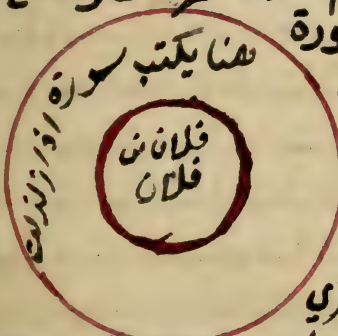 ورة
هنا يكتب سورة اذا زلزلت
فلان بن
فلان
ري